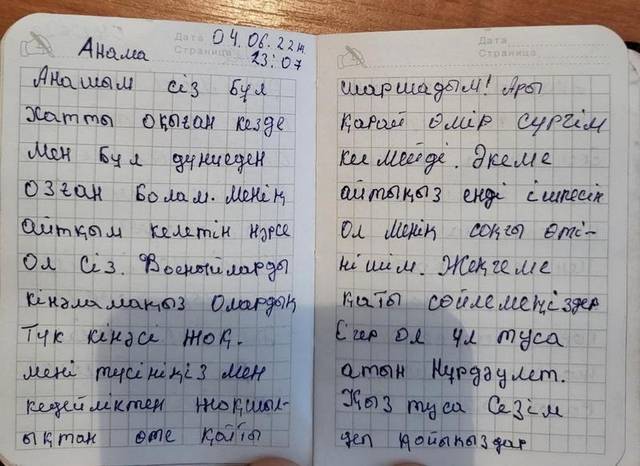 Дата 04.06.22ж
Страница 23:07
Анама
Анашым сіз бұл
хатты оқыған кезде
мен бұл дүниеден
озған болам. Менің
айтқым келетін нәрсе
ол сіз. Военныйларды
кінәламаңыз олардың
түк кінәсі жоқ.
мені түсініңіз мен
кедейліктен жоқшыл-
ықтан өте қатты
Дата
Страница
шаршадым! Ары
қарай өмір сүргім
келмейді. Әкеме
айтыңыз енді ішпесін
Ол менің соңғы өті-
нішім. Жеңгеме
қатты сөйлемеңіздер
Егер ол ұл туса
атын Нұрдәулет.
Қыз туса Сезім
деп қойыңыздар